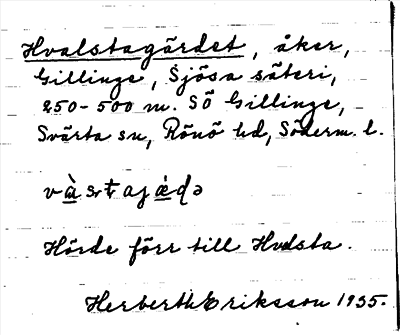 Hvalstagärdet, åker,
Gillinge, Sjösa säteri,
250-500 m. SÖ Gillinge,
Svärta sn, Rönö hd, Söderm. l.
Hörde förr till Hvalsta.
Herberth Eriksson 1935.